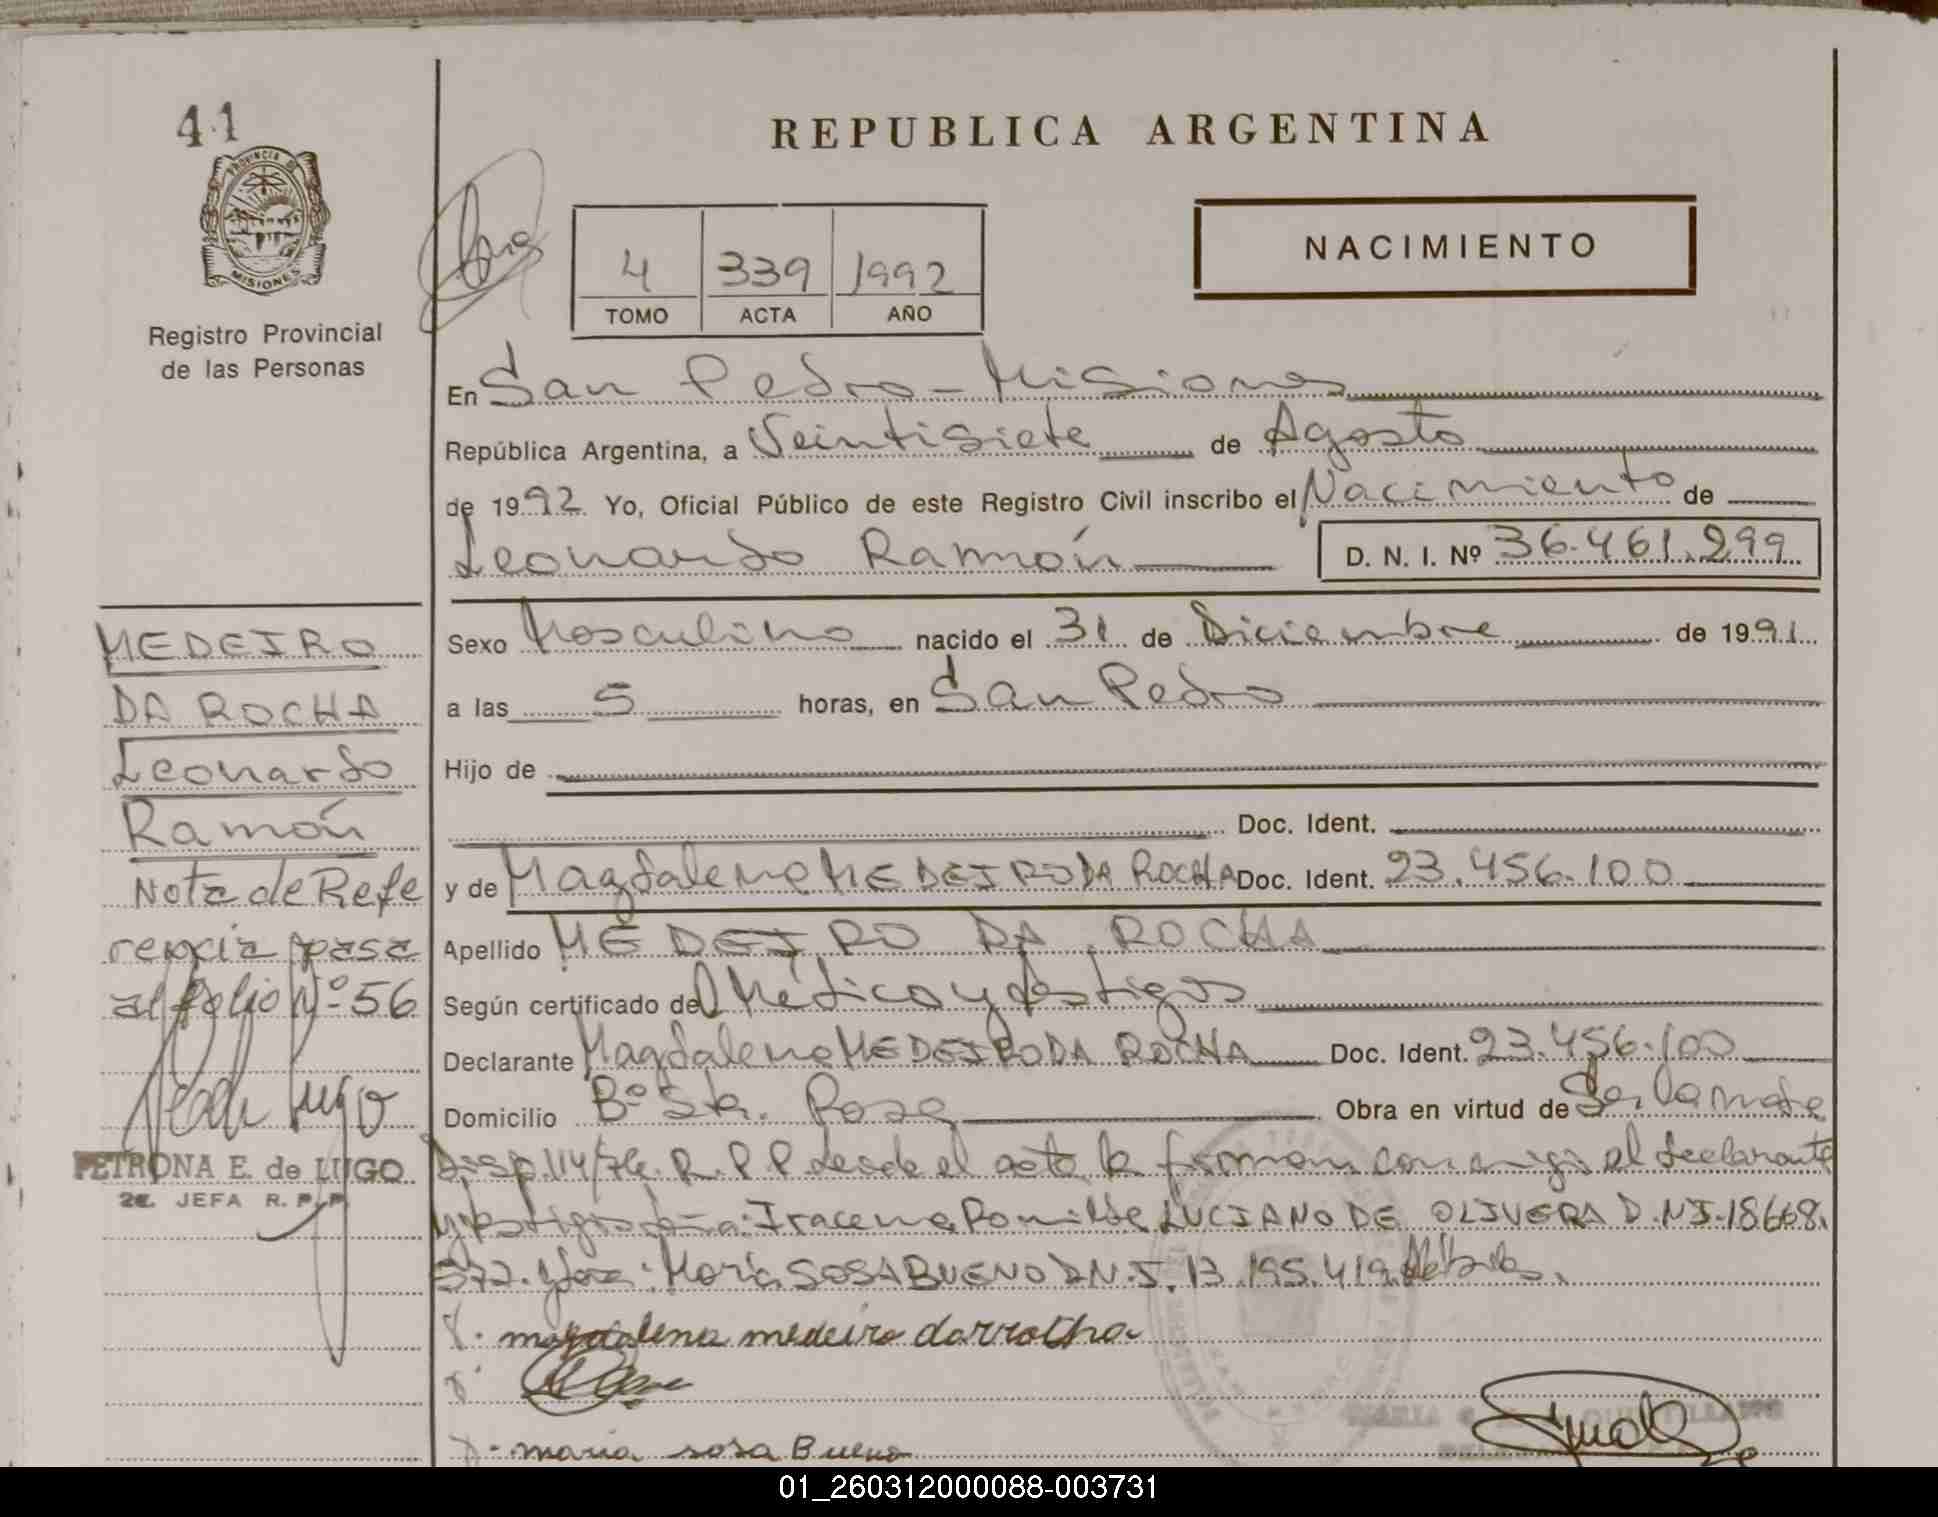 41
PROVINCIA DE
MISIONES
Registro Provincial
de las Personas
REPUBLICA ARGENTINA
NACIMIENTO
4 339 1992
TOMO ACTA AÑO
En San Pedro - Misiones
República Argentina, a Veintisiete de Agosto
de 1992 Yo, Oficial Público de este Registro Civil inscribo el Nacimiento de
Leonardo Ramón D. N. I. Nº 36.461.299
Sexo Masculino nacido el 31 de Diciembre de 1991
a las 5 horas, en San Pedro
Hijo de
Doc. Ident.
y de Magdalena MEDEIRO DA ROCHA Doc. Ident. 23.456.100
Apellido MEDEIRO DA ROCHA
Según certificado de Médico y testigos
Declarante Magdalena MEDEIRO DA ROCHA Doc. Ident. 23.456.100
Domicilio Bº Sta. Rosa Obra en virtud de Ser la madre
Disp. 114/76. R. P. P. el acta la firman conmigo el declarante
y testigos Iracema Romilde LUCIANO DE OLIVERA D.N.I. 18.668.
572. María SOSA BUENO D.N.I. 13.195.419.
magdalena medeiro darrocha
maria sosa Bueno
MEDEIRO
DA ROCHA
Leonardo
Ramón
Nota de Refe
rencia pasa
al folio Nº 56
PETRONA E. de LUGO
2a. JEFA R. P. P.
01_260312000088-003731